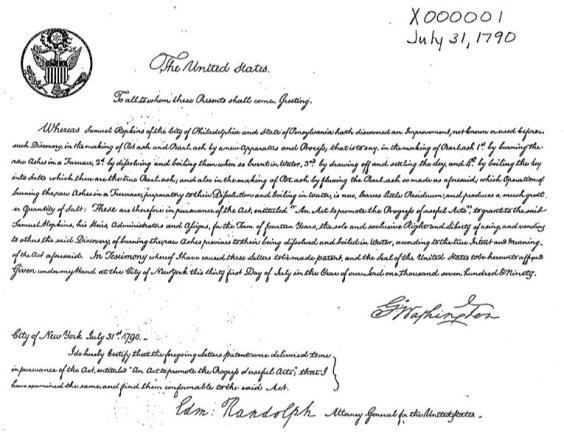 X000001
July 31, 1790
The United States.
To all to whom these Presents shall come, Greeting.
Whereas Samuel Hopkins of the City of Philadelphia and State of Pensylvania hath discovered an Improvement, not known or used before
such Discovery, in the making of Pot ash and Pearl ash by a new Apparatus and Process; that is to say, in the making of Pearl ash 1st. by burning the
raw Ashes in a Furnace, 2d. by dissolving and boiling them when so burnt in Water, 3rd. by drawing off and settling the Ley, and 4th. by boiling the Ley
into Salts which then are the true Pearl ash; and also in the making of Pot ash by fluxing the Pearl ash so made as aforesaid; which Operation of
burning the raw Ashes in a Furnace, preparatory to their Dissolution and boiling in Water, is new, leaves little Residuum; and produces a much greater
Quantity of Salt: These are therefore in pursuance of the Act, entituled "An Act to promote the Progress of useful Arts", to grant to the said
Samuel Hopkins, his Heirs, Administrators and Assigns, for the Term of fourteen Years, the sole and exclusive Right and Liberty of using and vending
to others the said Discovery, of burning the raw Ashes previous to their being dissolved and boiled in Water, according to the true Intent and Meaning
of the Act aforesaid. In Testimony whereof I have caused these Letters to be made patent, and the Seal of the United States to be hereunto affixed
Given under my Hand at the City of New York this thirty first Day of July in the Year of our Lord one thousand seven hundred & Ninety.
G. Washington
City of New York July 31st 1790.
I do hereby Certify that the foregoing Letters patent were delivered to me
in pursuance of the Act, entituled "An Act to promote the Progress of useful Arts"; that I
have examined the same, and find them conformable to the said Act.
Edm: Randolph Attorney General for the United States.